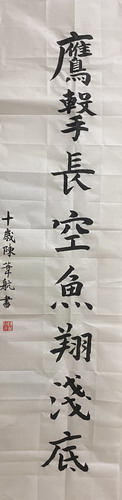 鷹擊長空魚翔淺底
十歲陳葦航書